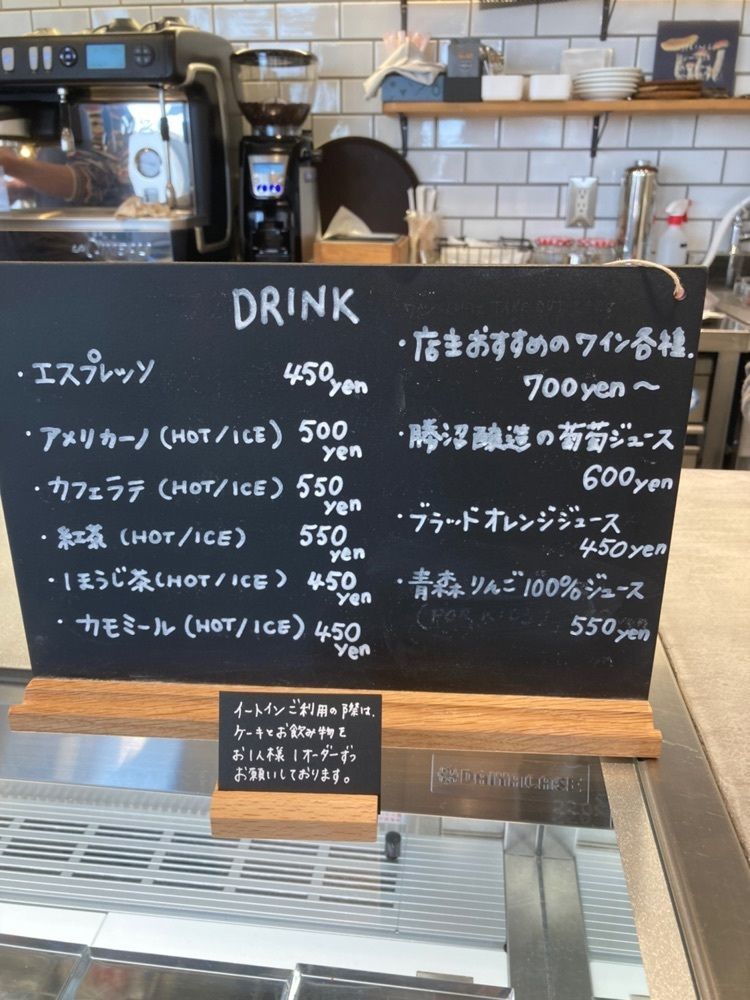 DRINK
・エスプレッソ 450yen
・アメリカーノ(HOT/ICE) 500yen
・カフェラテ(HOT/ICE) 550yen
・紅茶(HOT/ICE) 550yen
・ほうじ茶(HOT/ICE) 450yen
・カモミール(HOT/ICE) 450yen
・店主おすすめのワイン各種.
700yen〜
・勝沼醸造の葡萄ジュース
600yen
・ブラッドオレンジジュース
450yen
・青森りんご100%ジュース
550yen
イートインご利用の際は、
ケーキとお飲み物を
お1人様1オーダーずつ
お願いしております。